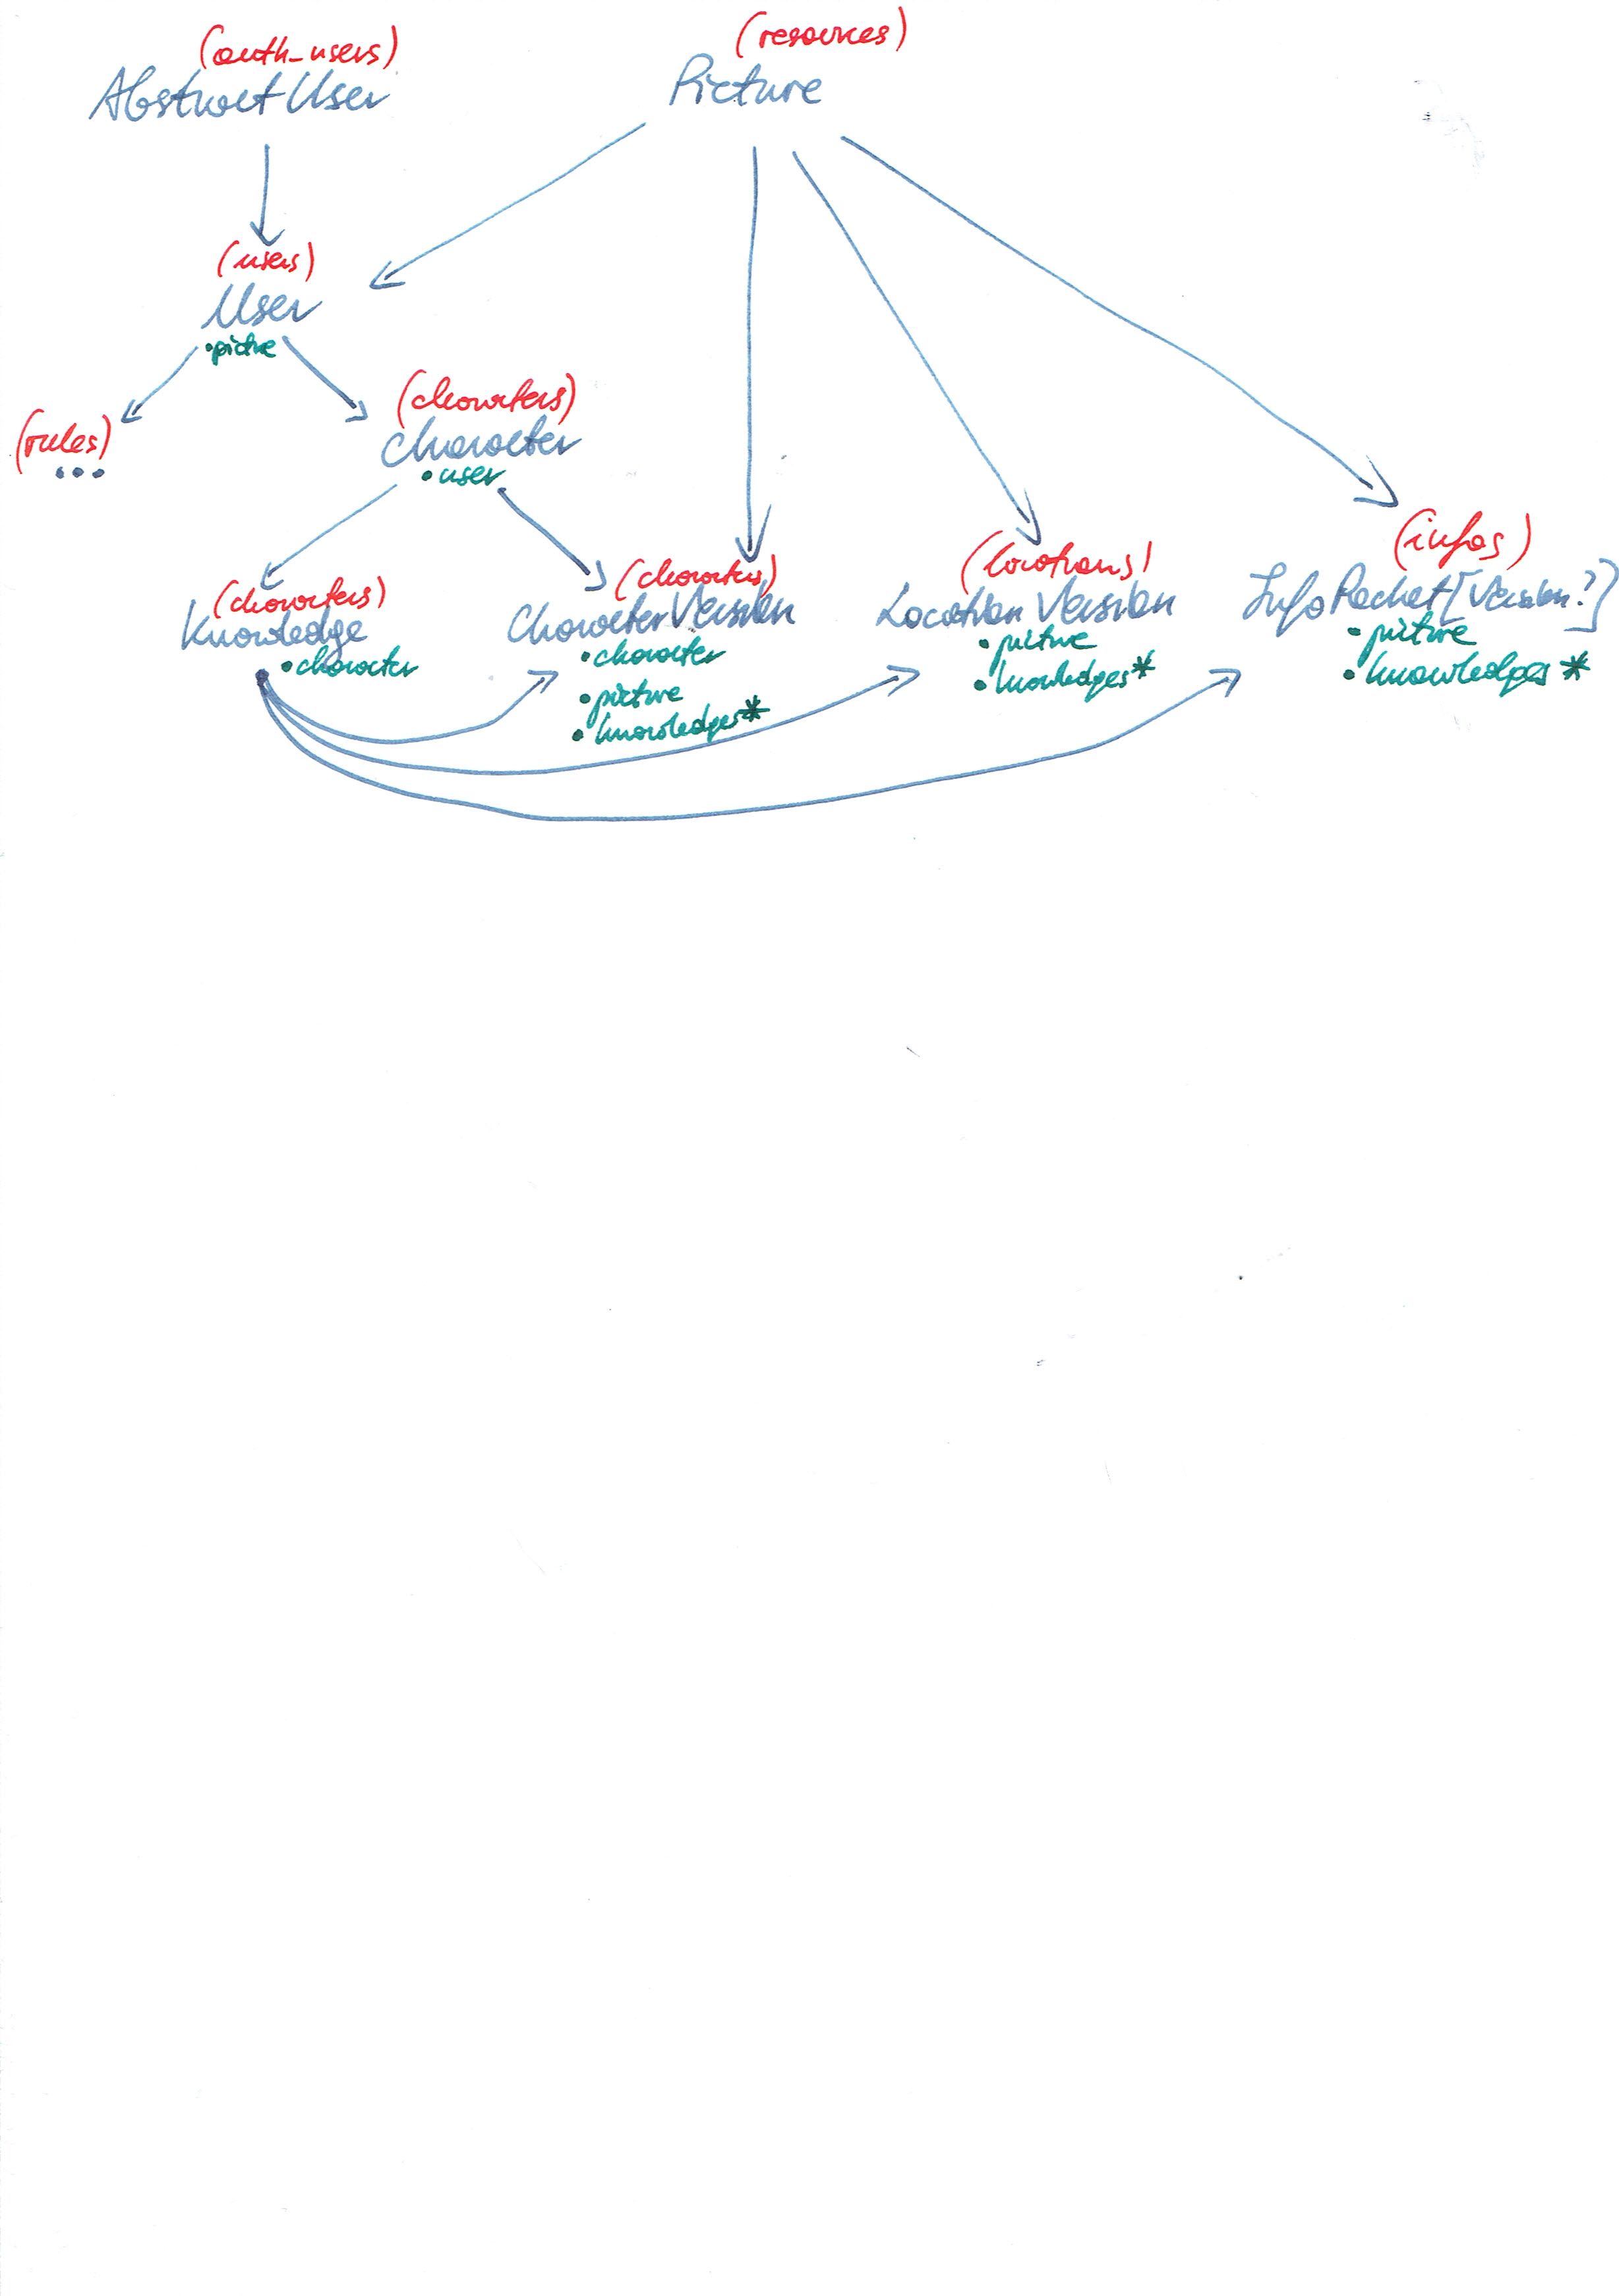 (auth_users)
AbstractUser
(resources)
Picture
(users)
User
•picture
(rules)
...
(characters)
Character
•user
(characters)
Knowledge
•character
(characters)
CharacterVersion
•character
•picture
•knowledges*
(locations)
LocationVersion
•picture
•knowledges*
(infos)
InfoPacket[Version?]
•picture
•knowledges*